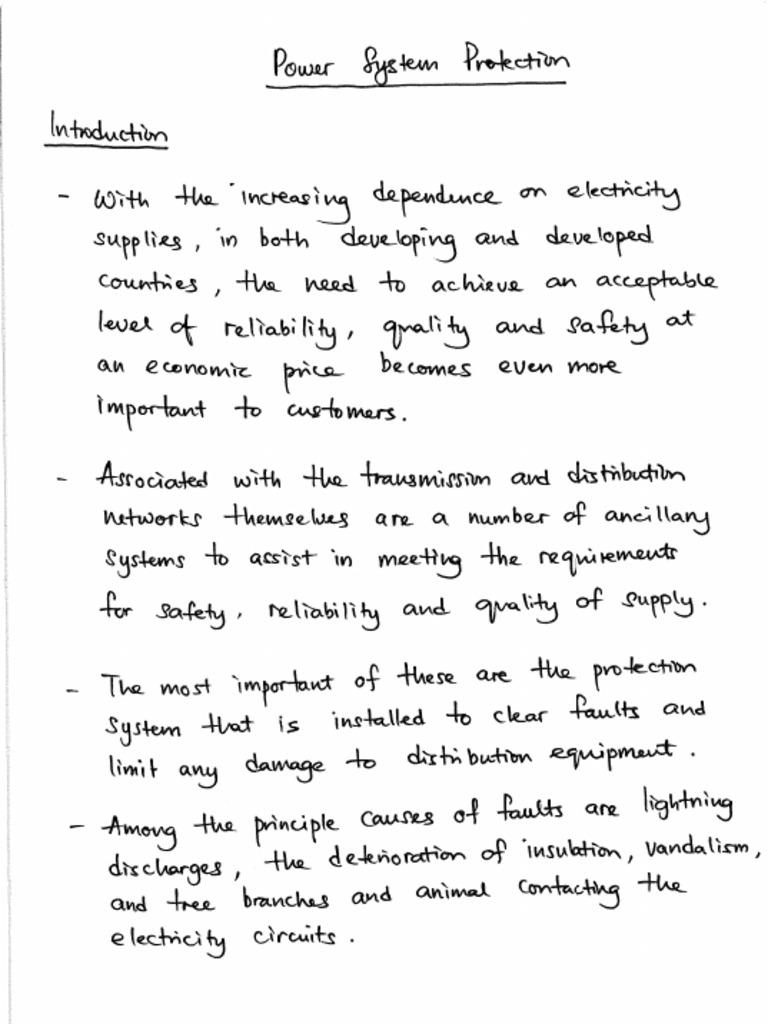 Power System Protection
Introduction
- With the increasing dependence on electricity
supplies, in both developing and developed
countries, the need to achieve an acceptable
level of reliability, quality and safety at
an economic price becomes even more
important to customers.
- Associated with the transmission and distribution
networks themselves are a number of ancillary
systems to assist in meeting the requirements
for safety, reliability and quality of supply.
- The most important of these are the protection
system that is installed to clear faults and
limit any damage to distribution equipment.
- Among the principle causes of faults are lightning
discharges, the deterioration of insulation, vandalism,
and tree branches and animal contacting the
electricity circuits.